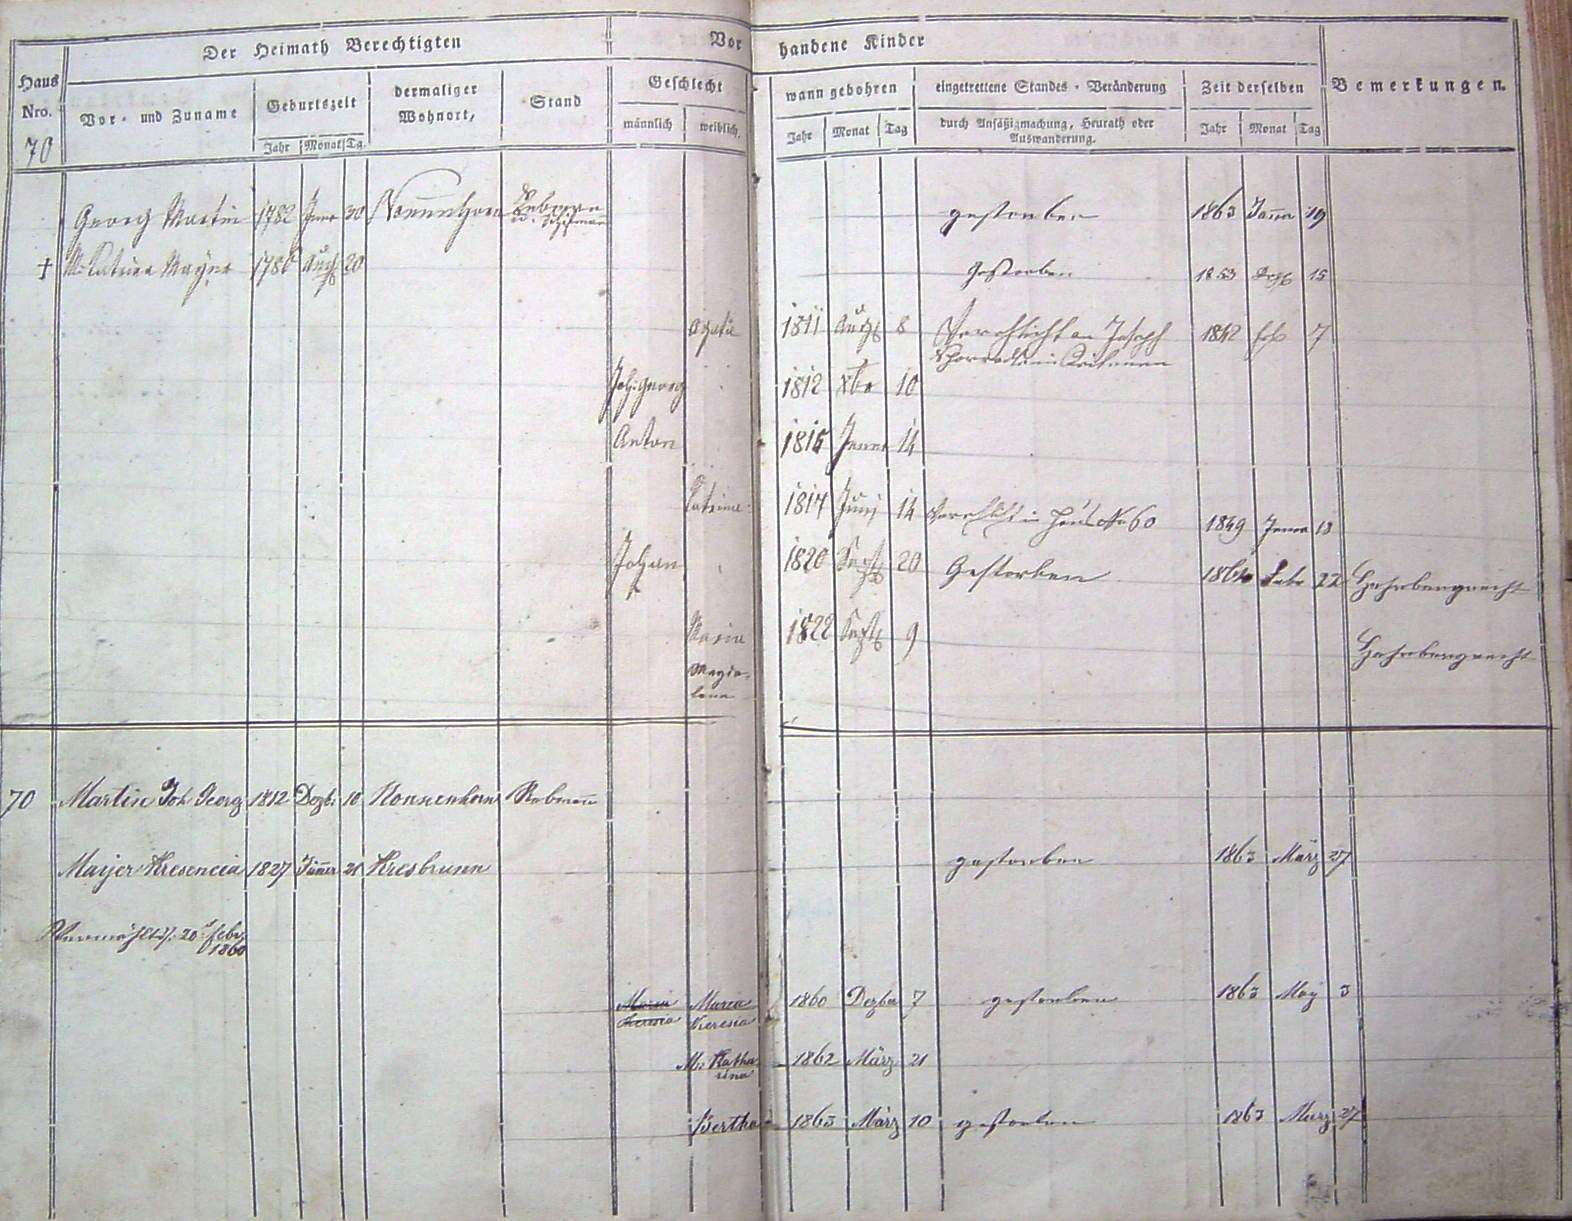 Der Heimath Berechtigten
Vorhandene Kinder
Haus Nro.
Vor- und Zuname
Geburtszeit
Jahr Monat Tg.
dermaliger Wohnort,
Stand
Geschlecht
männlich weiblich.
wann gebohren
Jahr Monat Tag
eingetrettene Standes-Veränderung
durch Ansäßigmachung, Heurath oder Auswanderung.
Zeit derselben
Jahr Monat Tag
Bemerkungen.
70
Georg Martin 1782 30 Nonnenhorn Rebmann gestorben 1863 19
† Mayer 1786 Augst 20 Gestorben 1853 15
1811 Augst 8 Verehlicht an Joseph 1842 Feb 7
Joh. Georg 1812 Xbr 10
Anton 1815 Jenner 14
Catrina 1817 Junij 14 Verehlicht in Haus No 60 1849 Jenner 13
Johan 1820 Sept 20 Gestorben 1864 Febr 22
Maria Magdalena 1822 Sept 9
70 Martin Joh Georg 1812 Dezbr 10 Nonnenhorn Rebmann
Maijer Kresencia 1827 Jänner 21 Kresbrunn gestorben 1863 März 27
20 Febr 1860
Maria Theresia Maria Theresia 1860 Dezber 7 gestorben 1863 May 3
M: Katharina 1862 März 21
Bertha 1863 März 10 gestorben 1863 März 27